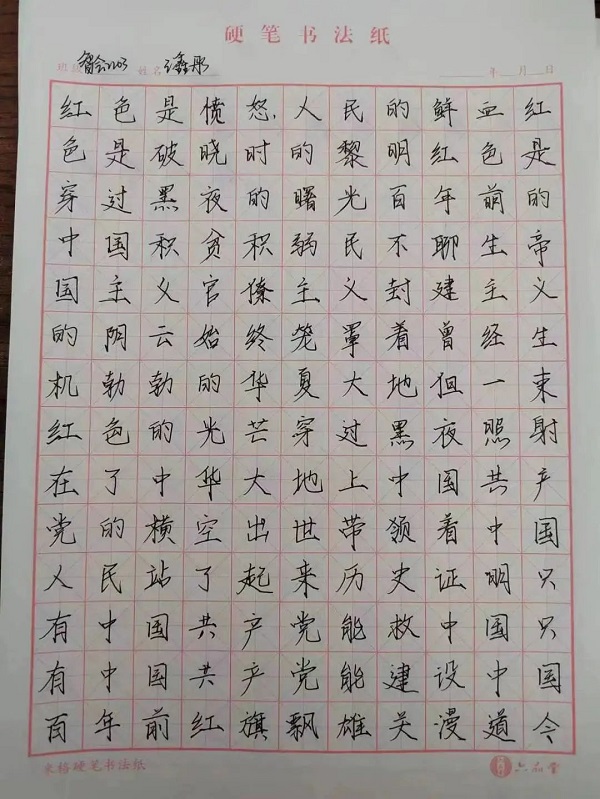 硬笔书法纸
班级 智会2203 姓名 年 月 日
红色是愤怒,人民的鲜血红
色是破晓时的黎明红色是
穿过黑夜的曙光百年前的
中国积贫积弱民不聊生帝
国主义官僚主义封建主义
的阴云始终笼罩着曾经生
机勃勃的华夏大地但一束
红色的光芒穿过黑夜照射
在了中华大地上中国共产
党的横空出世带领着中国
人民站了起来历史证明只
有中国共产党能救中国只
有中国共产党能建设中国
百年前红旗飘雄关漫道今
米格硬笔书法纸 六品堂